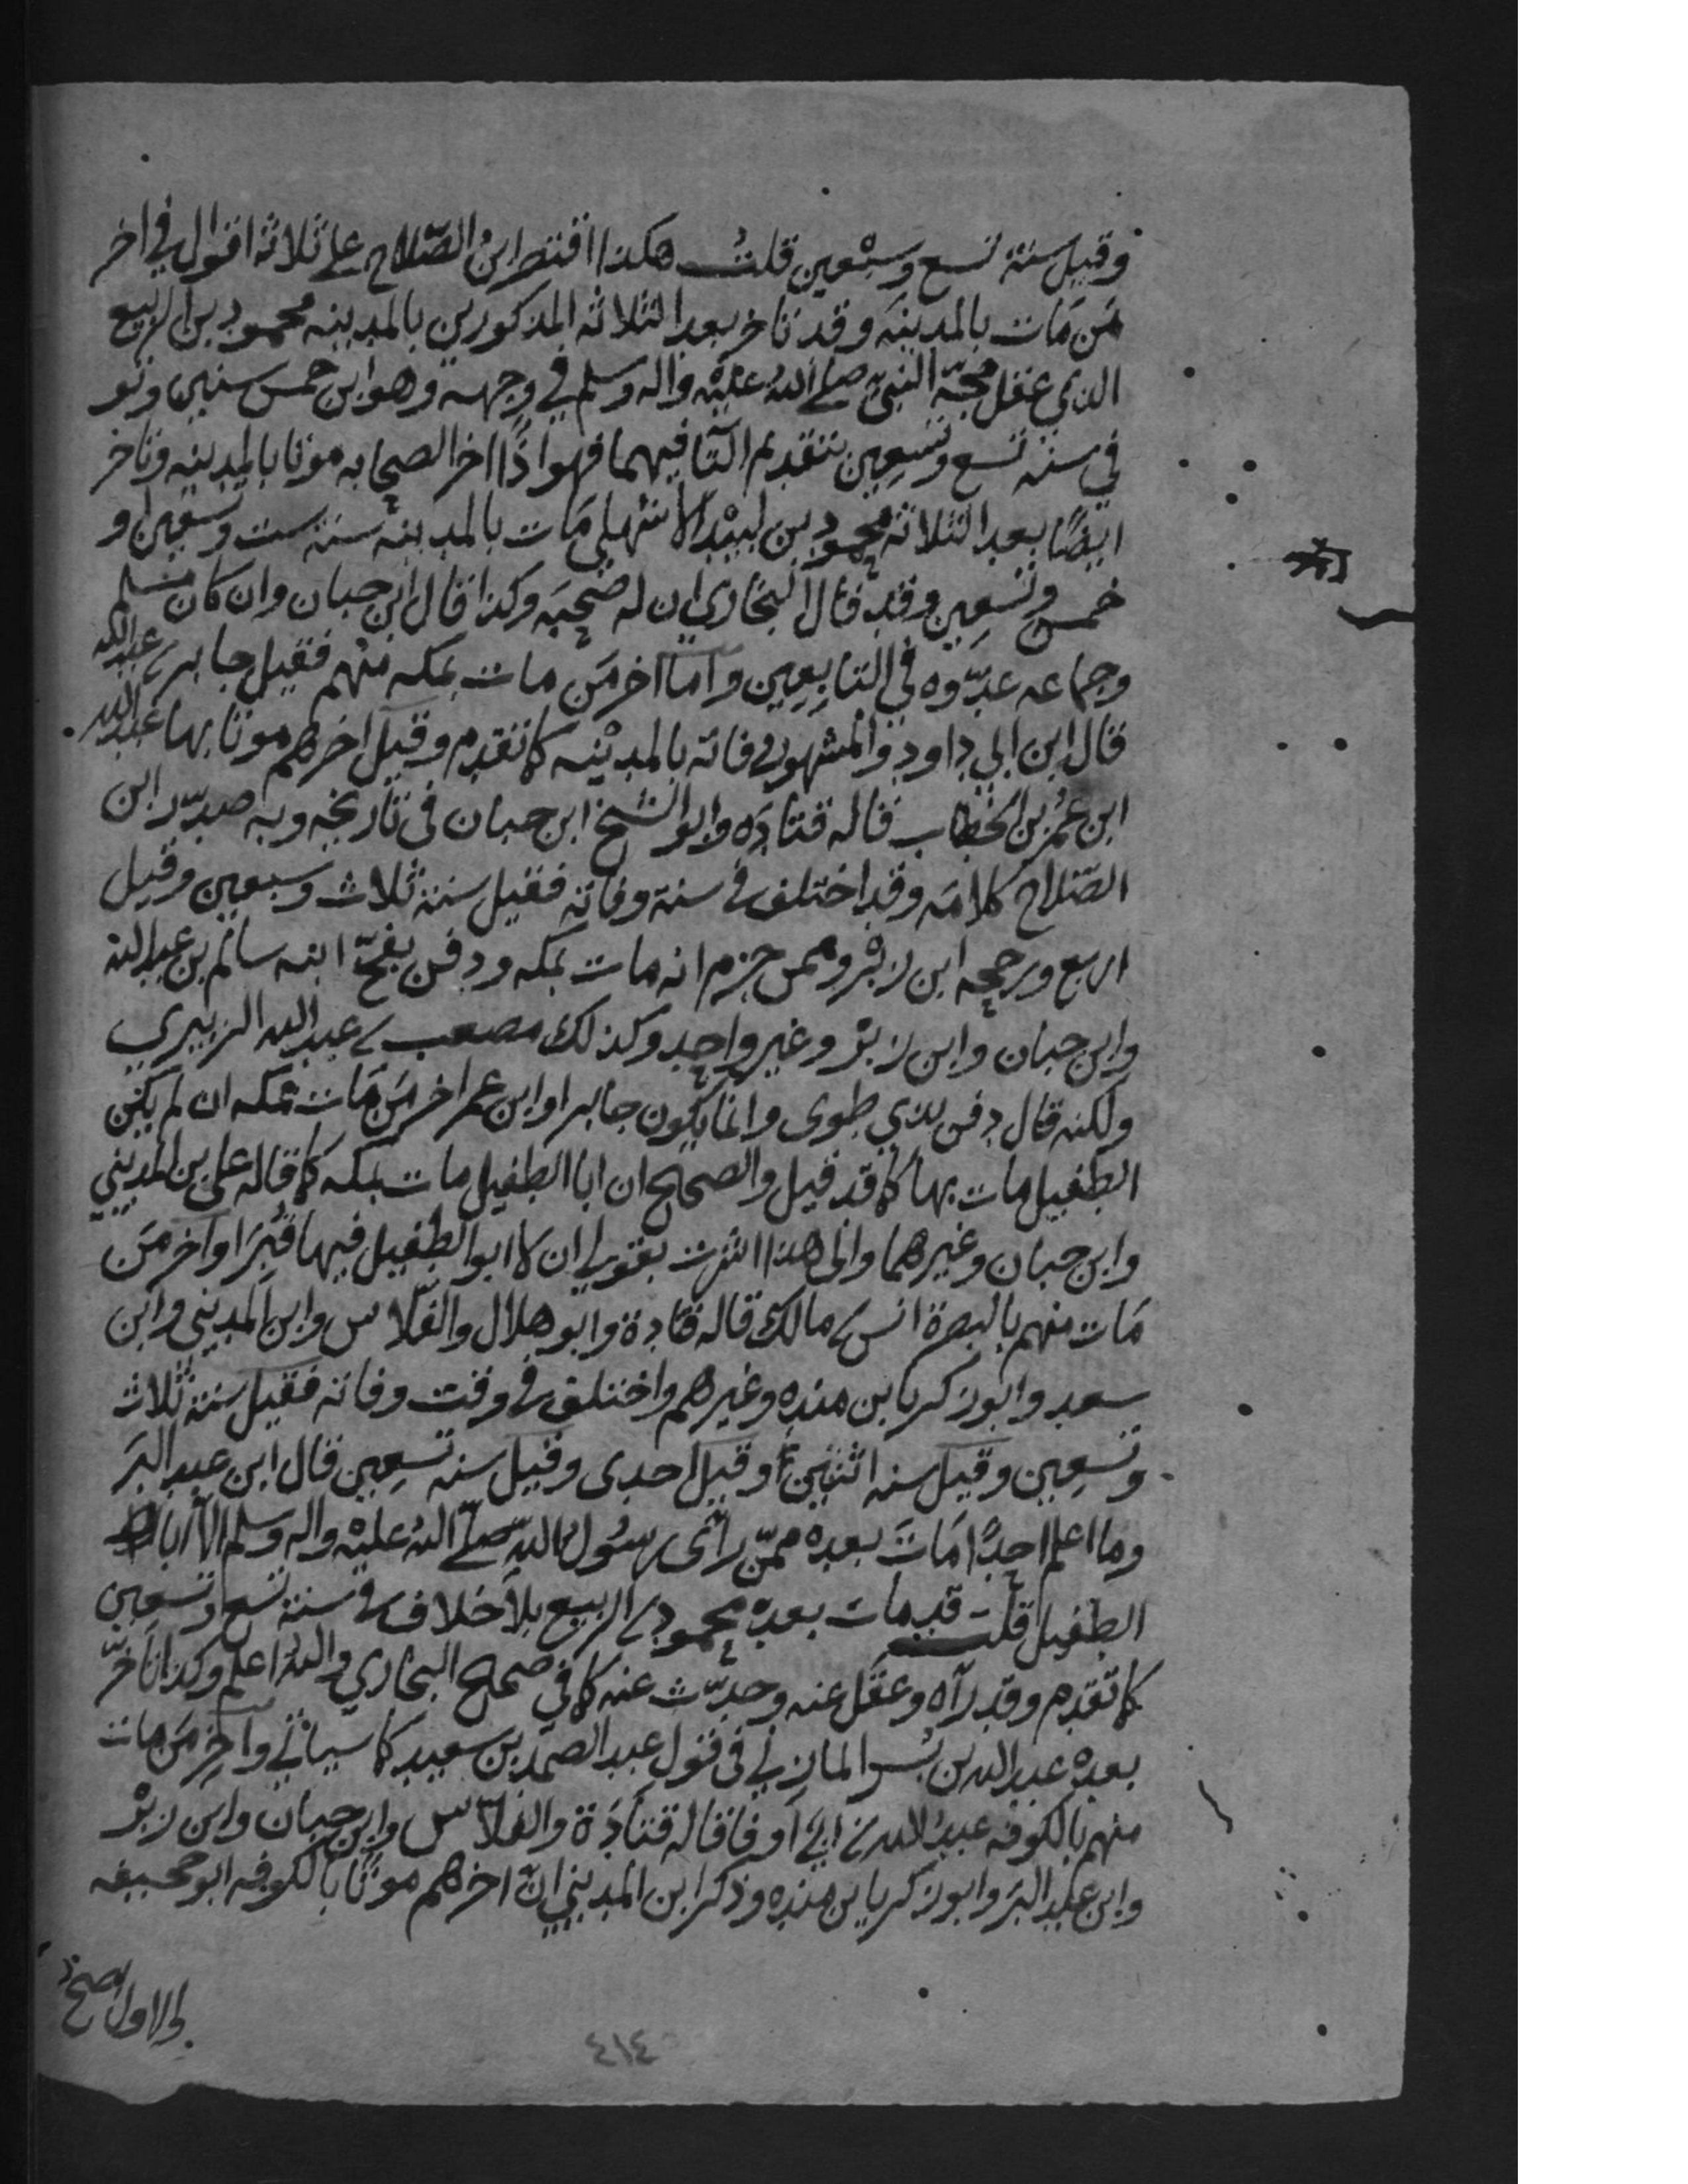 وقيل سنة تسع وسبعين قلت هكذا اقتصر ابن الصّلاح على ثلاثة اقوال في اخر
مَن مَات بالمدينَه وقد تاخر بعد الثلاثه المذكورين بالمدينه محمود بن الربيع
الذي عقل مجّة النبيّ صلى الله عليه واله وسلم في وجهه وهو ابن خمس سنين وتو
في سنه تسع وتسعين بتقديم التا فيهما فهو اذًا اخر الصحابه موتا بالمدينه وتاخر
ايضًا بعد الثلاثه محمود بن لبيد الاشهلي مَات بالمدينه سنة ست وتسعين او
خمس وتسعين وقد قال البخاري ان له صحبَه وكذا قال ابن حبان وان كان مسلم
وجماعه عدّوه في التابعين واما اخر مَن مات بمكه منهم فقيل جابر بن عبد الله
قال ابن ابي داود والمشهور وفاته بالمدينه كما تقدم وقيل اخرهم موتا بها عبد الله
ابن عُمر بن الخطاب قاله قتادَه وابو الشيخ ابن حبان في تاريخه وبه صدّر ابن
الصّلاح كلامَه وقد اختلف في سنة وفاته فقيل سنة ثلاث وسبعين وقيل
اربع ورجحه ابن زبْر وممن جزم انه مات بمكه ودفن بفخّ ابنه سالم بن عبد الله
وابن حبان وابن زبْر وغير واحد وكذلك مصعب بن عبد الله الزبيري
ولكنه قال دفن بذي طوى وانما يكون جابر او ابن عمر اخر مَن مَات بمكه ان لم يكن
الطفيل مات بها كما قد قيل والصحيح ان ابا الطفيل مات بمكه كما قاله على بن المديني
وابن حبان وغيرهما والى هذا اشرت بقولي ان لا ابو الطفيل فيها قُبِرَا واخر مَن
مَات منهم بالبصرة انس بن مالك قاله قتادة وابو هلال والفلّاس وابن المديني وابن
سعد وابو زكريا بن منده وغيرهم واختلف في وقت وفاته فقيل سنة ثلاث
وتسعين وقيل سنه اثنين وقيل احدى وقيل سنه تسعين قال ابن عبد البَر
وما اعلم احدًا مَاتَ بعده ممّن رأى رسُول الله صلّى اللهُ عليْه واله وسلم الّا ابا
الطفيل قلت قد مات بعده محمود بن الربيع بلا خلاف في سنة تسع وتسعين
كما تقدم وقد رآه وعقل عنه وحدّث عنه كما في صحيح البخاري والله اعلم وكذا تاخّر
بعده عبد الله بن بُسر المازني في قول عبد الصمد بن سعيد كما سياتي واخِر مَن مات
منهم بالكوفه عبد الله بن ابي اوفا قاله قتادَة والفلّاس وابن حبان وابن زبْر
وابن عبد البَر وابو زكريا بن منده وذكر ابن المديني انّ اخرهم موتًا بالكوفه ابو جحيفه
والاول اصح
٤١٤